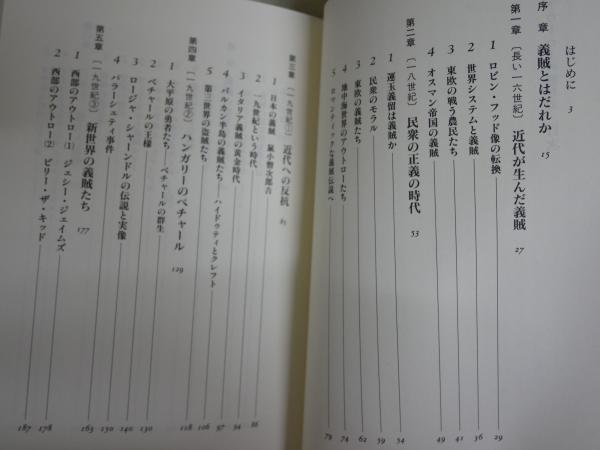 はじめに 3
序章 義賊とはだれか 15
第一章 〔長い一六世紀〕 近代が生んだ義賊 27
1 ロビン・フッド像の転換 29
2 世界システムと義賊 36
3 東欧の戦う農民たち 41
4 オスマン帝国の義賊 49
第二章 〔一八世紀〕 民衆の正義の時代 53
1 運玉義留は義賊か 54
2 民衆のモラル 59
3 東欧の義賊たち 62
4 地中海世界のアウトローたち 74
5 ロマンティックな義賊伝説へ 79
第三章 〔一九世紀①〕 近代への反抗 85
1 日本の義賊 鼠小僧次郎吉
2 一九世紀という時代 86
3 イタリア義賊の黄金時代 94
4 バルカン半島の義賊たち ハイドゥティとクレフト 97
5 第三世界の盗賊たち 106
118
第四章 〔一九世紀②〕 ハンガリーのベチャール 129
1 大平原の勇者たち ベチャールの群生 130
2 ベチャールの王様
3 ロージャ・シャーンドルの伝説と実像 140
4 バラーシュティ事件 150
第五章 〔一九世紀③〕 新世界の義賊たち 177
163
1 西部のアウトロー(1) ジェシー・ジェイムズ 178
2 西部のアウトロー(2) ビリー・ザ・キッド 187